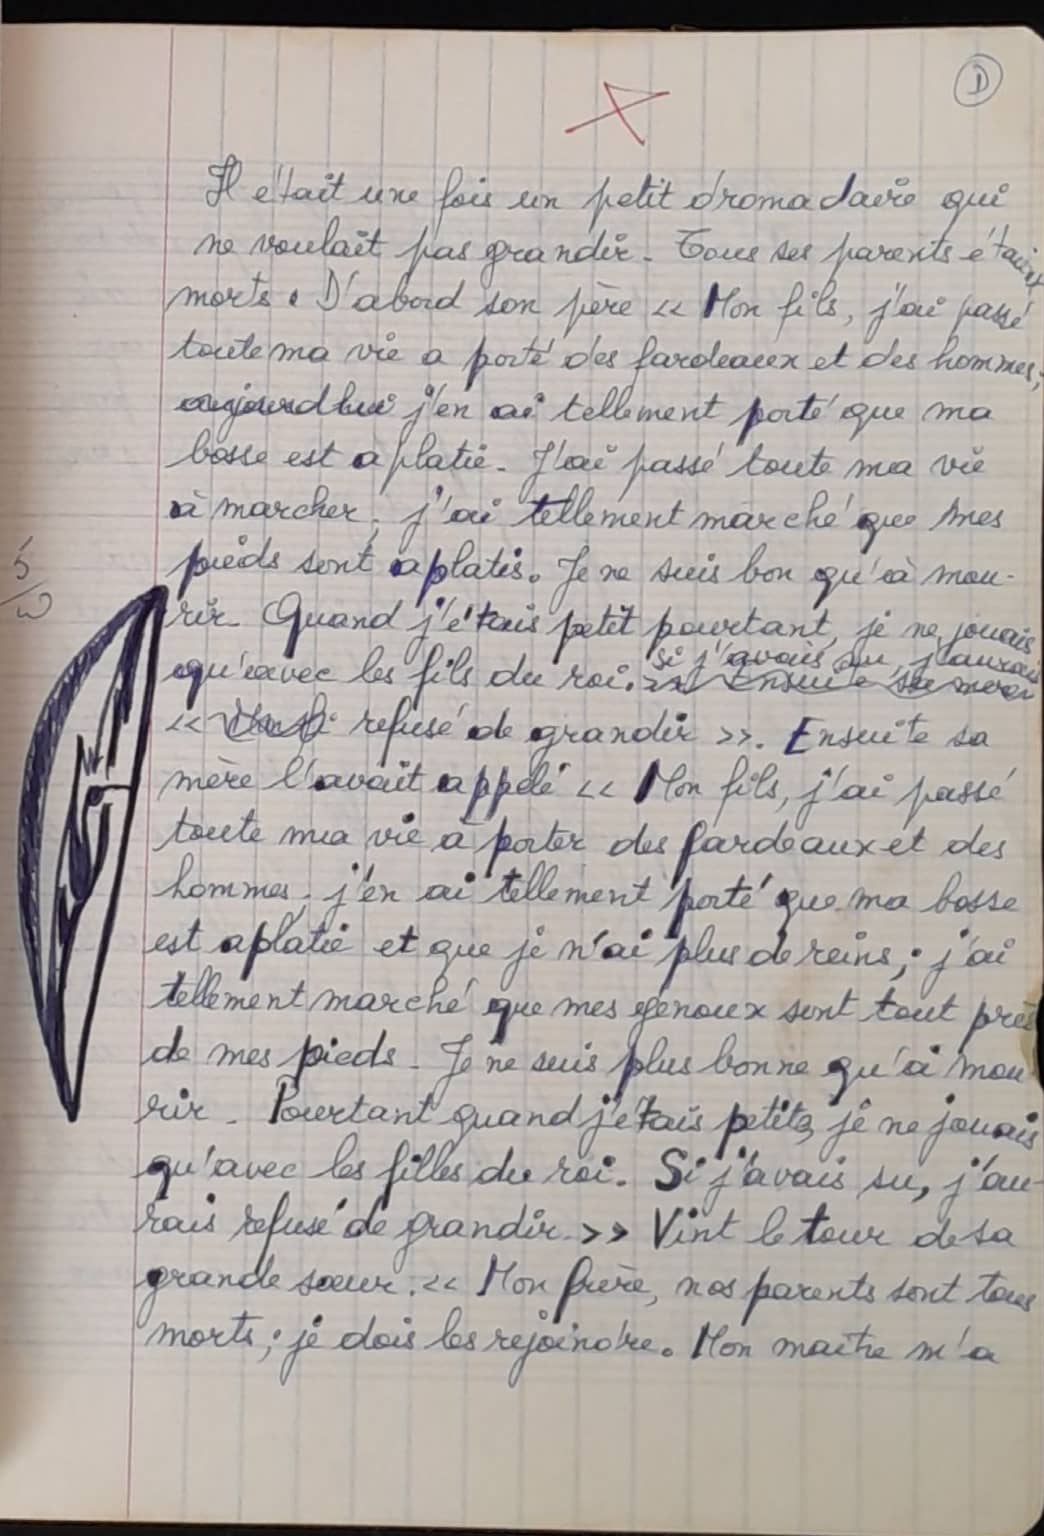 D
Il était une fois un petit dromadaire qui
ne voulait pas grandir. Tous ses parents étaient
morts. D'abord son père << Mon fils, j'ai passé
toute ma vie a porté des fardeaux et des hommes,
aujourdhui j'en ai tellement porté que ma
bosse est aplatie. J'ai passé toute ma vie
à marcher, j'ai tellement marché que mes
pieds sont aplatis. Je ne suis bon qu'à mou-
rir. Quand j'étais petit pourtant, je ne jouais
qu'avec les fils du roi. si j'avais su, j'aurais
<< refusé de grandir >>. Ensuite sa
mère l'avait appelé << Mon fils, j'ai passé
toute ma vie a porter des fardeaux et des
hommes, j'en ai tellement porté que ma bosse
est aplatie et que je n'ai plus de reins ; j'ai
tellement marché que mes genoux sont tout près
de mes pieds. Je ne suis plus bonne qu'à mou
rir. Pourtant quand j'étais petite, je ne jouais
qu'avec les filles du roi. Si j'avais su, j'au-
rais refusé de grandir. >> Vint le tour de sa
grande sœur. << Mon frère, nos parents sont tous
morts ; je dois les rejoindre. Mon maître m'a